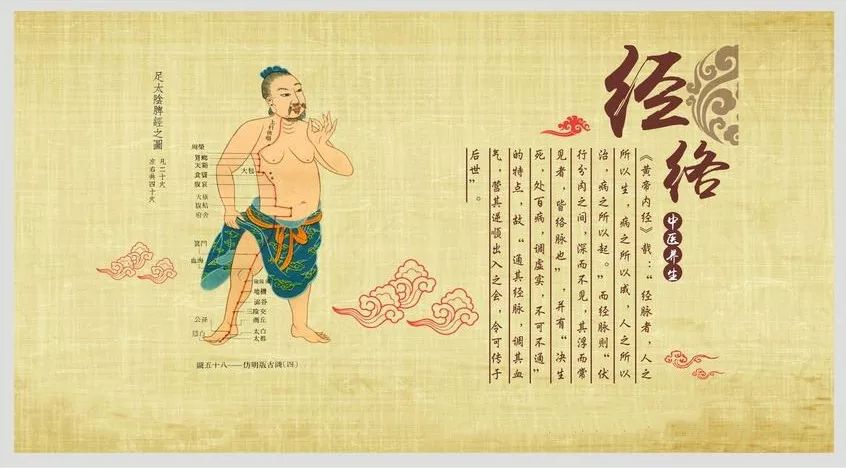 经络
中医养生
《黄帝内经》载:“经脉者,人之
所以生,病之所以成,人之所以
治,病之所以起。”而经脉则“伏
行分肉之间,深而不见,其浮而常
见者,皆络脉也”,并有“决生
死,处百病,调虚实,不可不通”
的特点,故“通其经脉,调其血
气,营其逆顺出入之会,令可传于
后世”。
足太陰脾經之圖
凡二十穴
左右共四十穴
周榮
大包
府舍
箕門
血海
地機
漏谷
三陰交
商丘
公孫
太白
隱白
圖五十八——仿明版古